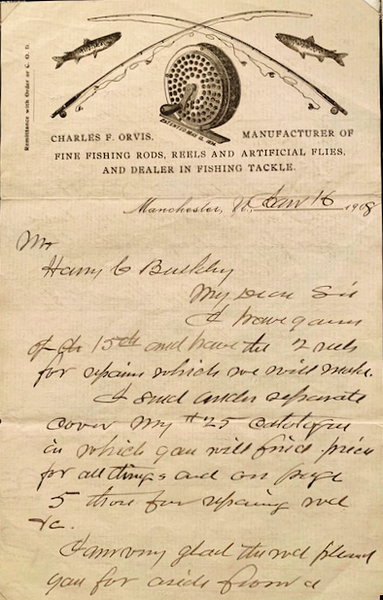 Remittance with Order or C. O. D.
PATENTED MAY 12, 1874
CHARLES F. ORVIS. MANUFACTURER OF
FINE FISHING RODS, REELS AND ARTIFICIAL FLIES,
AND DEALER IN FISHING TACKLE.
Manchester, Vt., Jan 16 1908
Mr
Harry C
My Dear Sir
I have yours
of the 15th and have the 2 reels
for repairs which we will make.
I send under separate
cover my #25 catalogue
in which you will find price
for all things and on page
5 those for repairing rod
&c.
I am very glad the rod pleased
you for aside from a